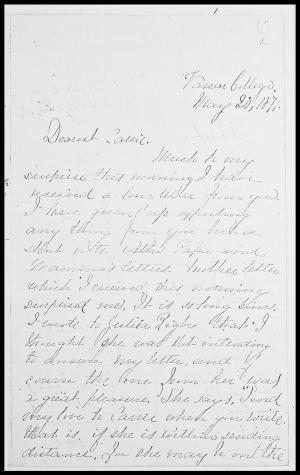 Vassar College,
May 22, 187
Dearest Carrie,
Much to my
surprise this morning I have
received a long letter from you.
I have given up expecting
any thing from you but a
short note within Papa and
Gramma's letters. Another letter
which I received this morning
surprised me. It is so long since
I wrote to Julita that I
thought she was not intending
to answer my letter, and of
course the one from her was
a great pleasure. She says, "Send
my love to Carrie when you write,
that is, if she is within sending
distance, for she may be on the